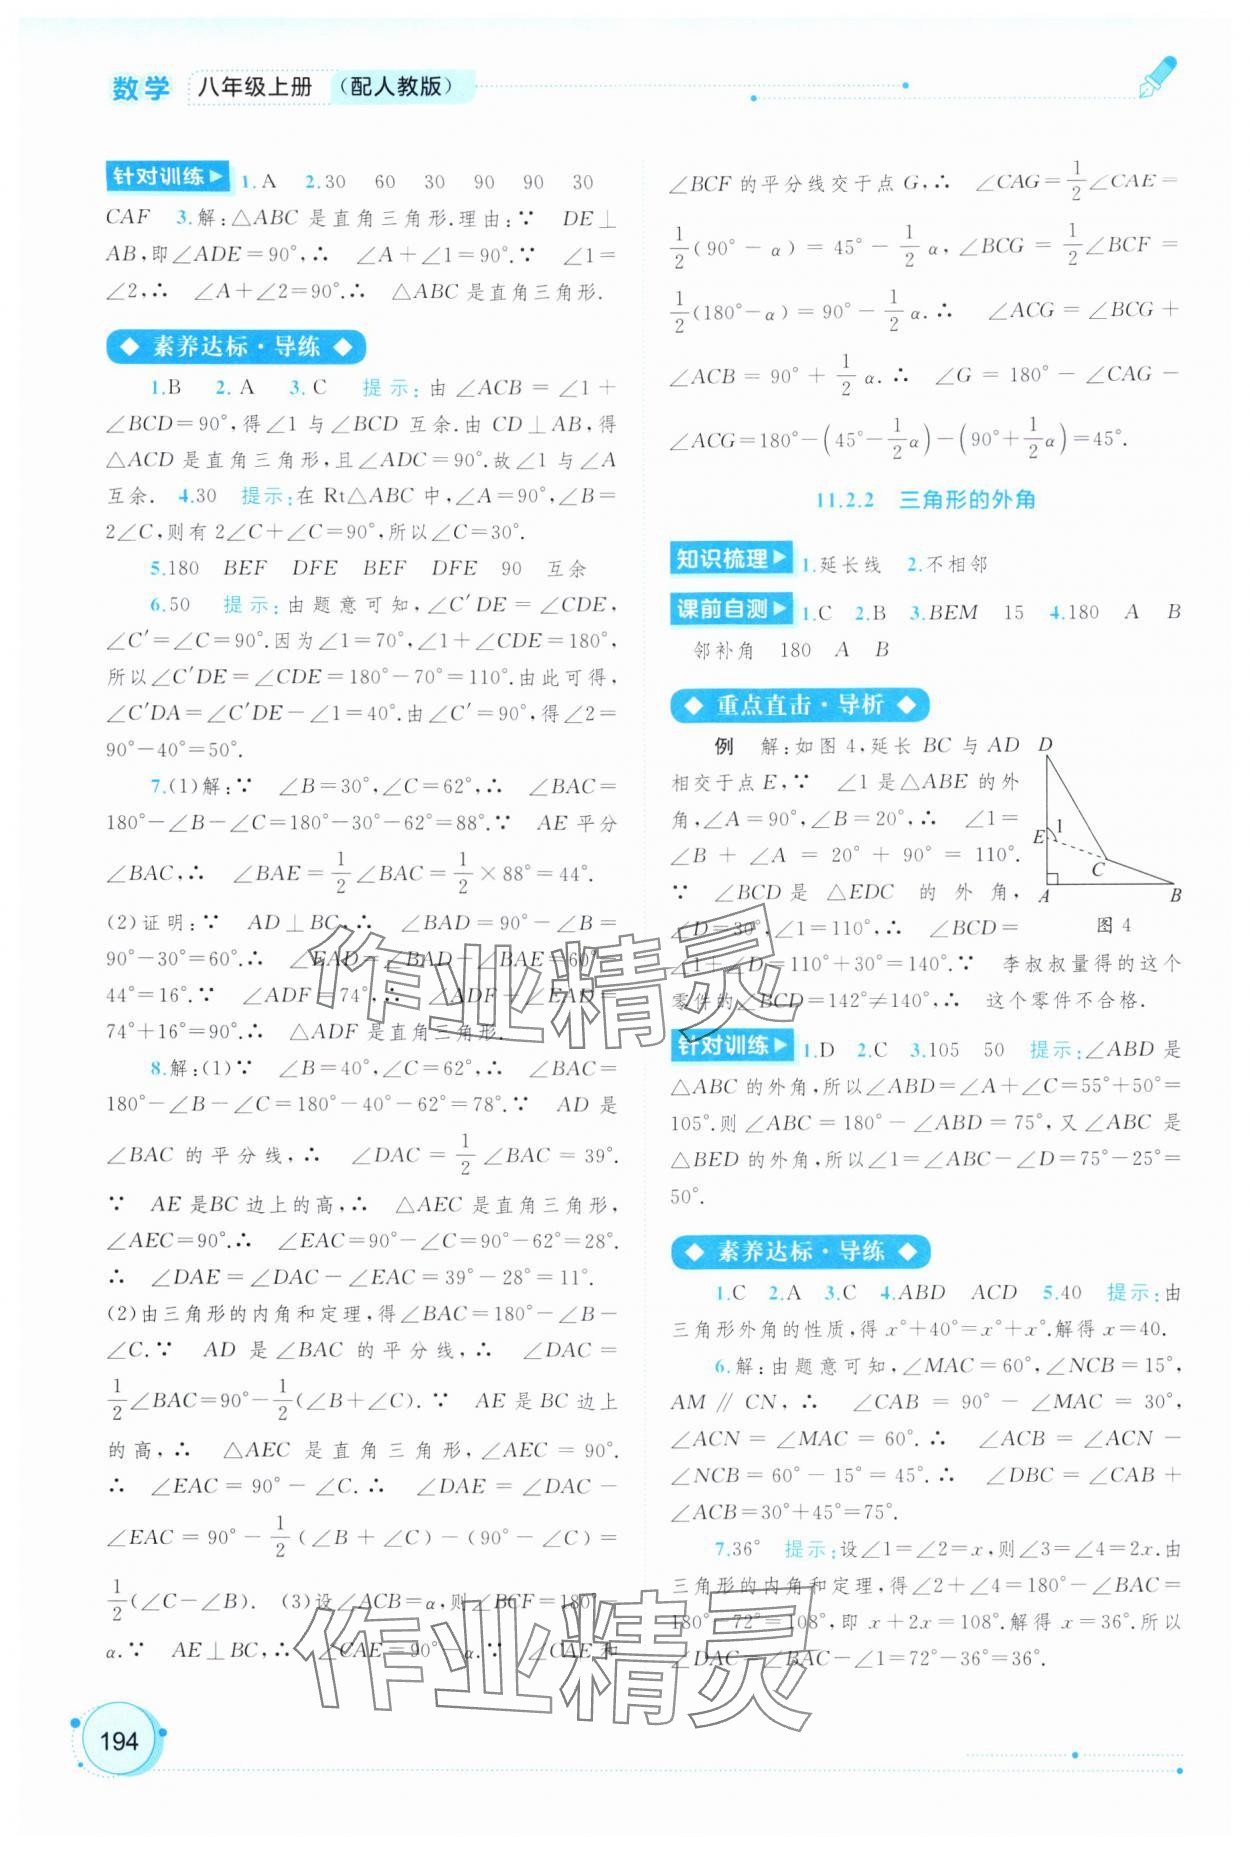 数学 八年级上册 （配人教版）
针对训练 1.A 2.30 60 30 90 90 30
CAF 3.解:△ABC 是直角三角形.理由:∵ DE⊥
AB,即∠ADE=90°,∴ ∠A+∠1=90°.∵ ∠1=
∠2,∴ ∠A+∠2=90°.∴ △ABC 是直角三角形.
素养达标·导练
1.B 2.A 3.C 提示:由∠ACB=∠1+
∠BCD=90°,得∠1与∠BCD 互余.由 CD⊥AB,得
△ACD 是直角三角形,且∠ADC=90°.故∠1与∠A
互余. 4.30 提示:在 Rt△ABC 中,∠A=90°,∠B=
2∠C,则有 2∠C+∠C=90°,所以∠C=30°.
5.180 BEF DFE BEF DFE 90 互余
6.50 提示:由题意可知,∠C′DE=∠CDE,
∠C′=∠C=90°.因为∠1=70°,∠1+∠CDE=180°,
所以∠C′DE=∠CDE=180°-70°=110°.由此可得,
∠C′DA=∠C′DE-∠1=40°.由∠C′=90°,得∠2=
90°-40°=50°.
7.(1)解:∵ ∠B=30°,∠C=62°,∴ ∠BAC=
180°-∠B-∠C=180°-30°-62°=88°.∵ AE 平分
∠BAC,∴ ∠BAE=1/2∠BAC=1/2×88°=44°.
(2)证明:∵ AD⊥BC,∴ ∠BAD=90°-∠B=
90°-30°=60°.∴ ∠EAD=∠BAD-∠BAE=60°-
44°=16°.∵ ∠ADF=74°,∴ ∠ADF+∠EAD=
74°+16°=90°.∴ △ADF 是直角三角形.
8.解:(1)∵ ∠B=40°,∠C=62°,∴ ∠BAC=
180°-∠B-∠C=180°-40°-62°=78°.∵ AD 是
∠BAC 的平分线,∴ ∠DAC=1/2∠BAC=39°.
∵ AE 是BC 边上的高,∴ △AEC 是直角三角形,
∠AEC=90°.∴ ∠EAC=90°-∠C=90°-62°=28°.
∴ ∠DAE=∠DAC-∠EAC=39°-28°=11°.
(2)由三角形的内角和定理,得∠BAC=180°-∠B-
∠C.∵ AD 是∠BAC 的平分线,∴ ∠DAC=
1/2∠BAC=90°-1/2(∠B+∠C).∵ AE 是 BC 边上
的高,∴ △AEC 是直角三角形,∠AEC=90°.
∴ ∠EAC=90°-∠C.∴ ∠DAE=∠DAC-
∠EAC=90°-1/2(∠B+∠C)-(90°-∠C)=
1/2(∠C-∠B). (3)设∠ACB=α,则∠BCF=180°-
α.∵ AE⊥BC,∴ ∠CAE=90°-α.∵ ∠CAE 和
194
∠BCF 的平分线交于点 G,∴ ∠CAG=1/2∠CAE=
1/2(90°-α)=45°-1/2α,∠BCG=1/2∠BCF=
1/2(180°-α)=90°-1/2α.∴ ∠ACG=∠BCG+
∠ACB=90°+1/2α.∴ ∠G=180°-∠CAG-
∠ACG=180°-(45°-1/2α)-(90°+1/2α)=45°.
11.2.2 三角形的外角
知识梳理 1.延长线 2.不相邻
课前自测 1.C 2.B 3.BEM 15 4.180 A B
邻补角 180 A B
重点直击·导析
例 解:如图 4,延长 BC 与 AD
相交于点 E,∵ ∠1 是△ABE 的外
角,∠A=90°,∠B=20°,∴ ∠1=
∠B+∠A=20°+90°=110°.
∵ ∠BCD 是 △EDC 的外角,
∠D=30°,∠1=110°,∴ ∠BCD=
∠1+∠D=110°+30°=140°.∵ 李叔叔量得的这个
零件的∠BCD=142°≠140°,∴ 这个零件不合格.
D
E 1
C
A B
图 4
针对训练 1.D 2.C 3.105 50 提示:∠ABD 是
△ABC 的外角,所以∠ABD=∠A+∠C=55°+50°=
105°.则∠ABC=180°-∠ABD=75°,又∠ABC 是
△BED 的外角,所以∠1=∠ABC-∠D=75°-25°=
50°.
素养达标·导练
1.C 2.A 3.C 4.ABD ACD 5.40 提示:由
三角形外角的性质,得 x°+40°=x°+x°.解得 x=40.
6.解:由题意可知,∠MAC=60°,∠NCB=15°,
AM∥CN,∴ ∠CAB=90°-∠MAC=30°,
∠ACN=∠MAC=60°.∴ ∠ACB=∠ACN-
∠NCB=60°-15°=45°.∴ ∠DBC=∠CAB+
∠ACB=30°+45°=75°.
7.36° 提示:设∠1=∠2=x,则∠3=∠4=2x.由
三角形的内角和定理,得∠2+∠4=180°-∠BAC=
180°-72°=108°,即 x+2x=108°.解得 x=36°.所以
∠DAC=∠BAC-∠1=72°-36°=36°.
作业精灵
作业精灵